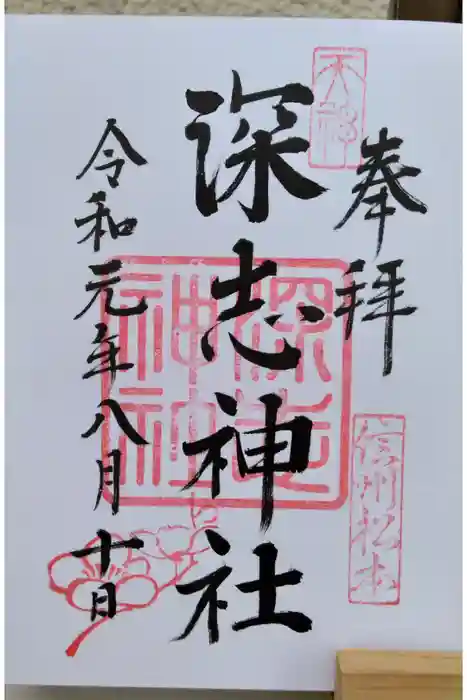 天神
奉拝
信州松本
深志神社
深志神社
令和元年八月十日